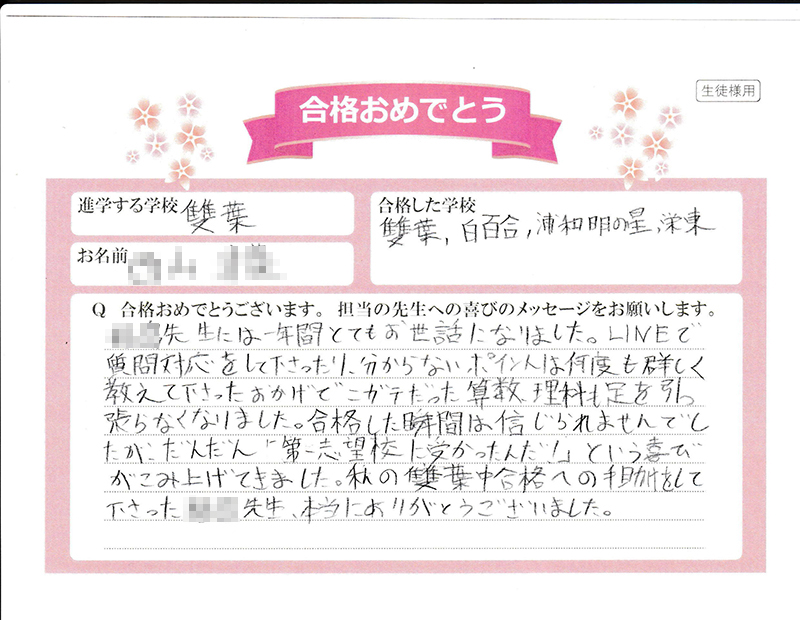 生徒様用
合格おめでとう
進学する学校 雙葉
合格した学校
雙葉, 白百合, 浦和明の星, 栄東
お名前
Q 合格おめでとうございます。 担当の先生への喜びのメッセージをお願いします。
先生には一年間とてもお世話になりました。LINEで
質問対応をして下さったり、分からないポイントは何度も詳しく
教えて下さったおかげでニガテだった算数、理科も足を引っ
張らなくなりました。合格した瞬間は信じられませんでし
たが、だんだん「第一志望校に受かったんだ!」という喜び
がこみ上げてきました。私の雙葉中合格への手助けをして
下さった 先生、本当にありがとうございました。